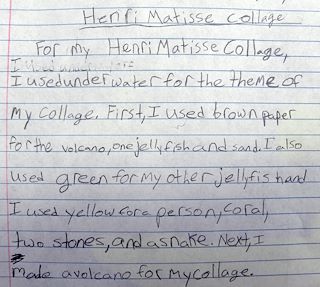 Henri Matisse Collage
For my Henri Matisse Collage,
I used
I used under water for the theme of
my collage. First, I used brown paper
for the volcano, one jelly fish and sand. I also
used green for my other jelly fish and
I used yellow for a person, coral,
two stones, and a snake. Next, I
made a volcano for my collage.